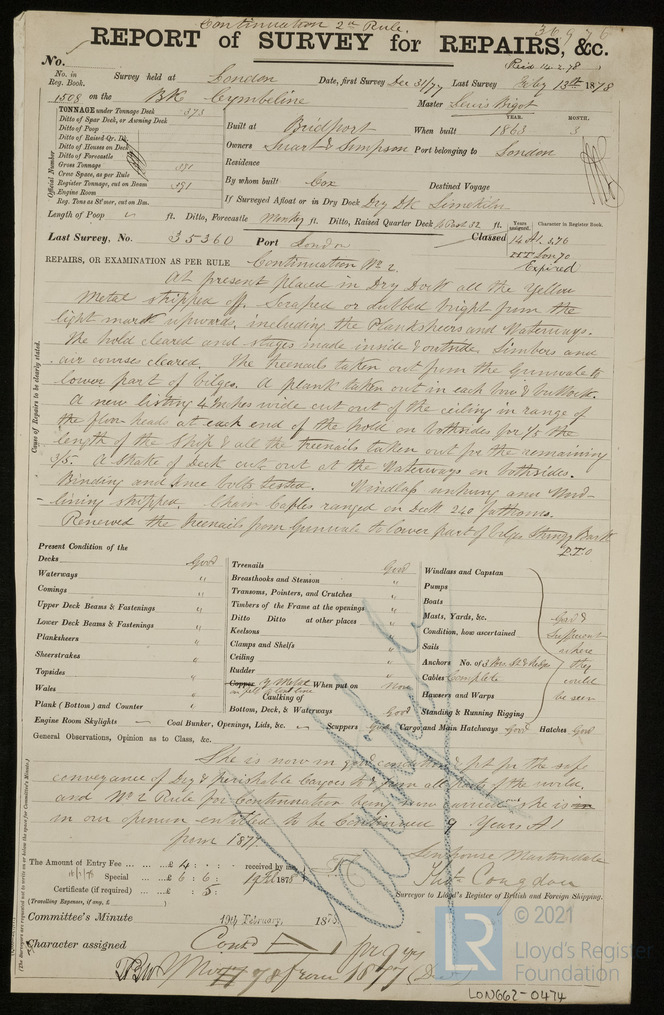 Continuation 2nd Rule.
REPORT of SURVEY for REPAIRS, &c.
Recd 14.2.78
No.
No. in Reg. Book. Survey held at London Date, first Survey Dec 31/77 Last Survey Feby 13th 1878
1508 on the BK Cymbeline Master Lewis Bigot
TONNAGE under Tonnage Deck 373
Ditto of Spar Deck, or Awning Deck
Ditto of Poop
Ditto of Raised Qr. Dk.
Ditto of Houses on Deck
Ditto of Forecastle
Gross Tonnage 391
Crew Space, as per Rule
Register Tonnage, cut on Beam 391
Engine Room
Reg. Tons as St'mer, cut on Bm.
Official Number
YEAR. MONTH.
Built at Bridport When built 1863 3
Owners Stuart & Simpson Port belonging to London
Residence
By whom built Cox Destined Voyage
If Surveyed Afloat or in Dry Dock Dry Dk Limekiln
Length of Poop ft. Ditto, Forecastle Monkey ft. Ditto, Raised Quarter Deck 32 ft.
Years assigned. Character in Register Book.
Last Survey, No. 35360 Port London Classed 14 A1 5.76
Lon 70
Expired
REPAIRS, OR EXAMINATION AS PER RULE Continuation No 2.
Cause of Repairs to be clearly stated.
At present placed in Dry Dock all the Yellow
Metal stripped off. Scraped or dubbed bright from the
light mark upwards, including the Planksheers and Waterways.
The hold cleared and stages made inside & outside, Limbers and
air courses cleared. The treenails taken out from the Gunwale to
lower part of bilges. A plank taken out in each bow & buttock.
A new listing 4 inches wide cut out of the ceiling in range of
the floor heads at each end of the hold on bothsides for 1/5 the
length of the Ship & all the treenails taken out for the remaining
3/5. A strake of deck cut out at the Waterways on bothsides.
Binding and knee bolts tested. Windlass unhung and wood-
-lining stripped. Chain Cables ranged on deck 240 fathoms.
Renewed the treenails from Gunwale to lower part of bilges Stringy Bark
P.T.O
Present Condition of the
Decks Good
Waterways "
Comings "
Upper Deck Beams & Fastenings "
Lower Deck Beams & Fastenings "
Planksheers "
Sheerstrakes "
Topsides "
Wales "
Plank (Bottom) and Counter "
Engine Room Skylights
Treenails Good
Breasthooks and Stemson "
Transoms, Pointers, and Crutches "
Timbers of the Frame at the openings "
Ditto Ditto at other places "
Keelsons "
Clamps and Shelfs "
Ceiling "
Rudder "
Copper Y Metal When put on Now
Caulking of
Bottom, Deck, & Waterways Good
Coal Bunker, Openings, Lids, &c. Scuppers Good Cargo and Main Hatchways Good Hatches Good
Windlass and Capstan
Pumps
Boats
Masts, Yards, &c.
Condition, how ascertained
Sails
Anchors No. of 3 Brs, St & Kedges
Cables Complete
Hawsers and Warps
Standing & Running Rigging
Good &
Sufficient
where
they
could
be seen
General Observations, Opinion as to Class, &c.
She is now in good condition & fit for the safe
conveyance of Dry & perishable Cargoes to & from all part of the world.
and No 2 Rule for Continuation being now carried she is
in our opinion entitled to be Continued 9 Years A1
from 1877
The Amount of Entry Fee £ 4 : : received by me,
Special £ 6 : 6 : 1878
Certificate (if required) : 5
(Travelling Expenses, if any, £ )
Ambrose Martindale
Thos Congdon
Surveyor to Lloyd's Register of British and Foreign Shipping.
Committee's Minute 19th February, 1878
Character assigned Contd A1 for 9 yrs
from 1877
© 2021
LR Lloyd's Register
Foundation
LON662-0474